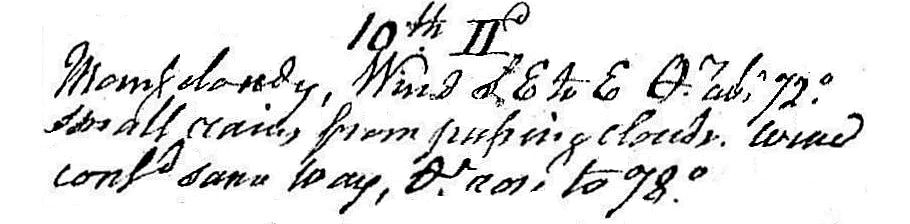 10th IId
Morng cloudy, Wind S,E to E θr. abt 72°.
small rains from passing clouds. Wind
contd same way, θr. rose to 78°.